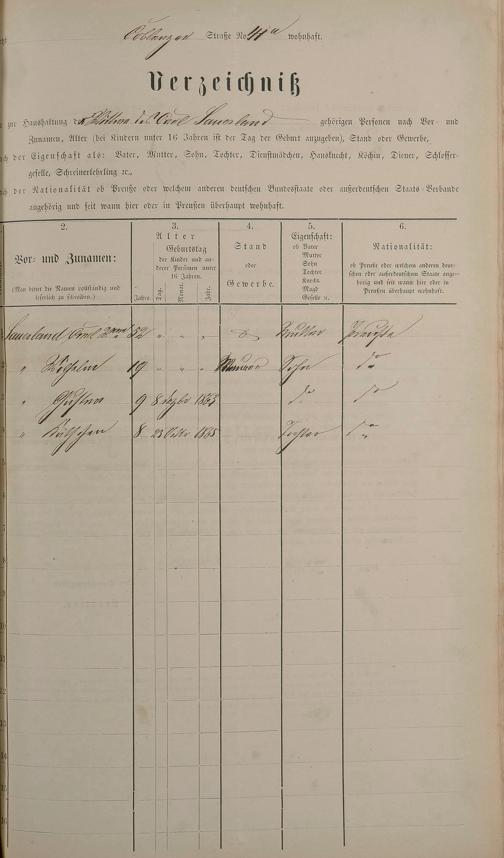 Coblenzer Straße No. 41a wohnhaft.
Verzeichniß
zur Haushaltung der Wittwe des Carl Sauerland gehörigen Personen nach Vor- und
Zunamen, Alter (bei Kindern unter 16 Jahren ist der Tag der Geburt anzugeben), Stand oder Gewerbe,
der Eigenschaft als: Vater, Mutter, Sohn, Tochter, Dienstmädchen, Hausknecht, Köchin, Diener, Schlosser-
geselle, Schreinerlehrling ꝛc.,
der Nationalität ob Preuße oder welchem anderen deutschen Bundesstaate oder außerdeutschen Staats-Verbande
angehörig und seit wann hier oder in Preußen überhaupt wohnhaft.
2. 3. 4. 5. 6.
Vor- und Zunamen:
(Man bittet die Namen vollständig und leserlich zu schreiben.)
Alter
Geburtstag
der Kinder und an-
derer Personen unter
16 Jahren.
Jahre. Tag. Monat. Jahr.
Stand
oder
Gewerbe.
Eigenschaft:
ob Vater
Mutter
Sohn
Tochter
Knecht
Magd
Geselle ꝛc.
Nationalität:
ob Preuße oder welchem anderen deut-
schen oder außerdeutschen Staate ange-
hörig und seit wann hier oder in
Preußen überhaupt wohnhaft.
Sauerland Carl Wwe 52 " " " Mutter Preußin
" Wilhelm 19 " " " Maurer Sohn do
" Gustav 9 8 1863 do do
" 8 23 1865 Tochter do